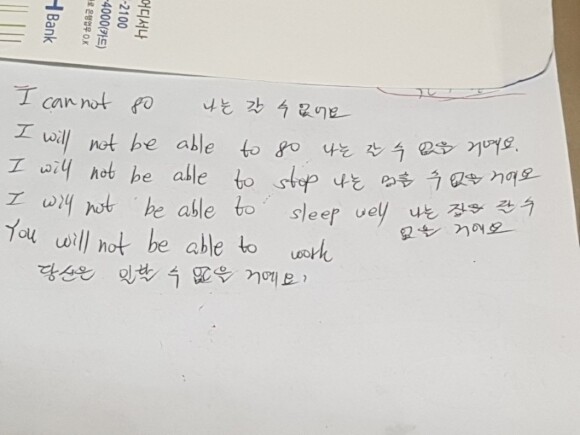 어디서나
-2100
-4000(카드)
Bank
I cannot go 나는 갈 수 없어요
I will not be able to go 나는 갈 수 없을 거예요.
I will not be able to stop 나는 멈출 수 없을 거예요
I will not be able to sleep well 나는 잠을 잘 수
없을 거예요
You will not be able to work
당신은 일할 수 없을 거예요.